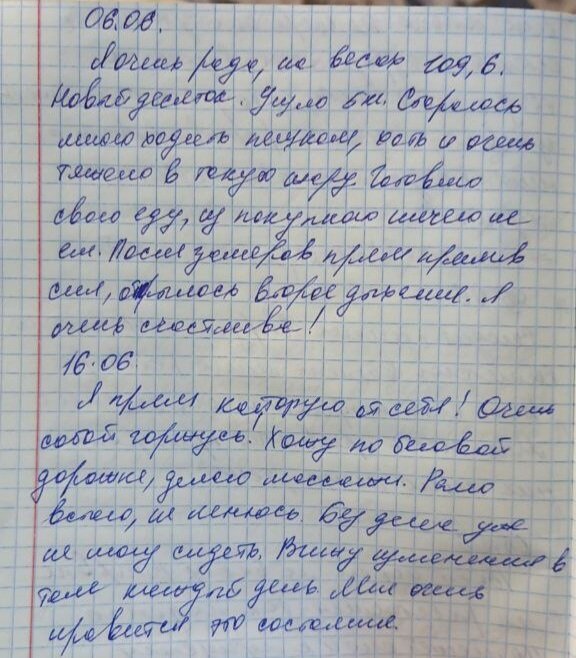 06.06.
Я очень рада, на весах 109,6.
Новый десяток. Ушло 5 кг. Старалась
много ходить пешком, хоть и очень
тяжело в такую жару. Готовлю
свою еду, из покупного ничего не
ем. После замеров прям прилив
сил, открылось второе дыхание. Я
очень счастлива!
16.06.
Я прям кайфую от себя! Очень
собой горжусь. Хожу по беговой
дорожке, делаю массажи. Рано
встаю, не ленюсь. Без дела уже
не могу сидеть. Вижу изменения в
теле каждый день. Мне очень
нравится это состояние.